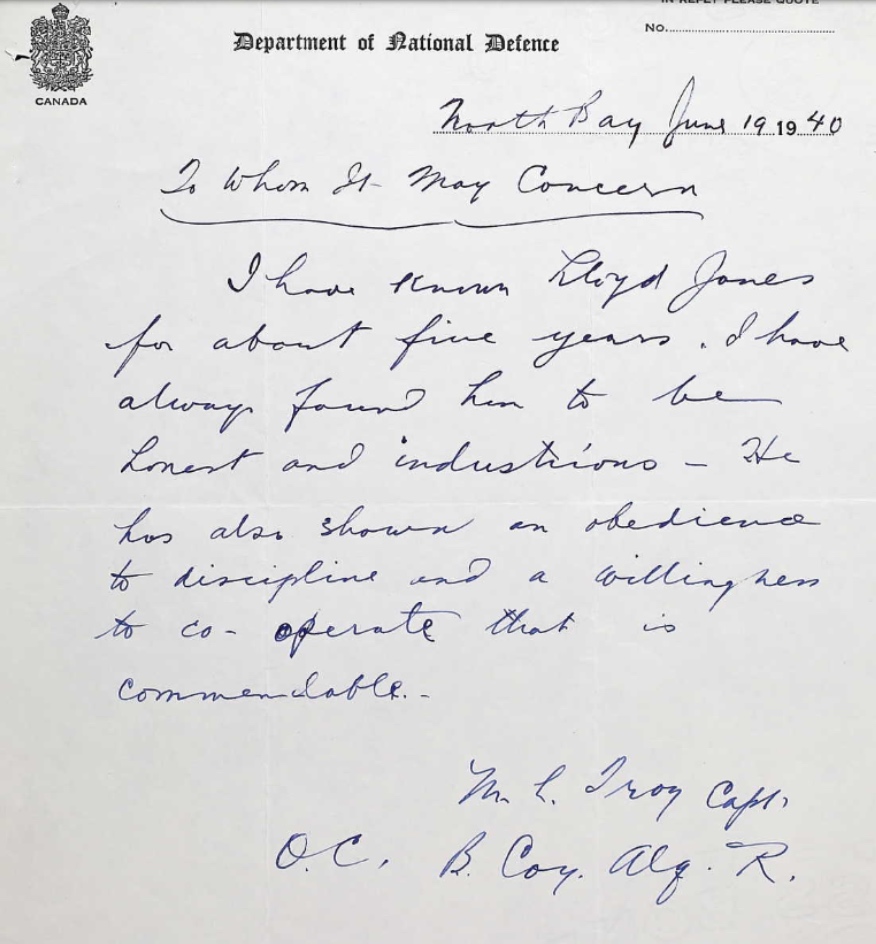 IN REPLY PLEASE QUOTE
No.
Department of National Defence
CANADA
North Bay June 19 1940
To Whom It May Concern
I have known Lloyd Jones
for about five years. I have
always found him to be
honest and industrious - He
has also shown an obedience
to discipline and a willingness
to co-operate that is
commendable.-
M. L. Troy Capt.
O.C. B. Coy. Alg. R.